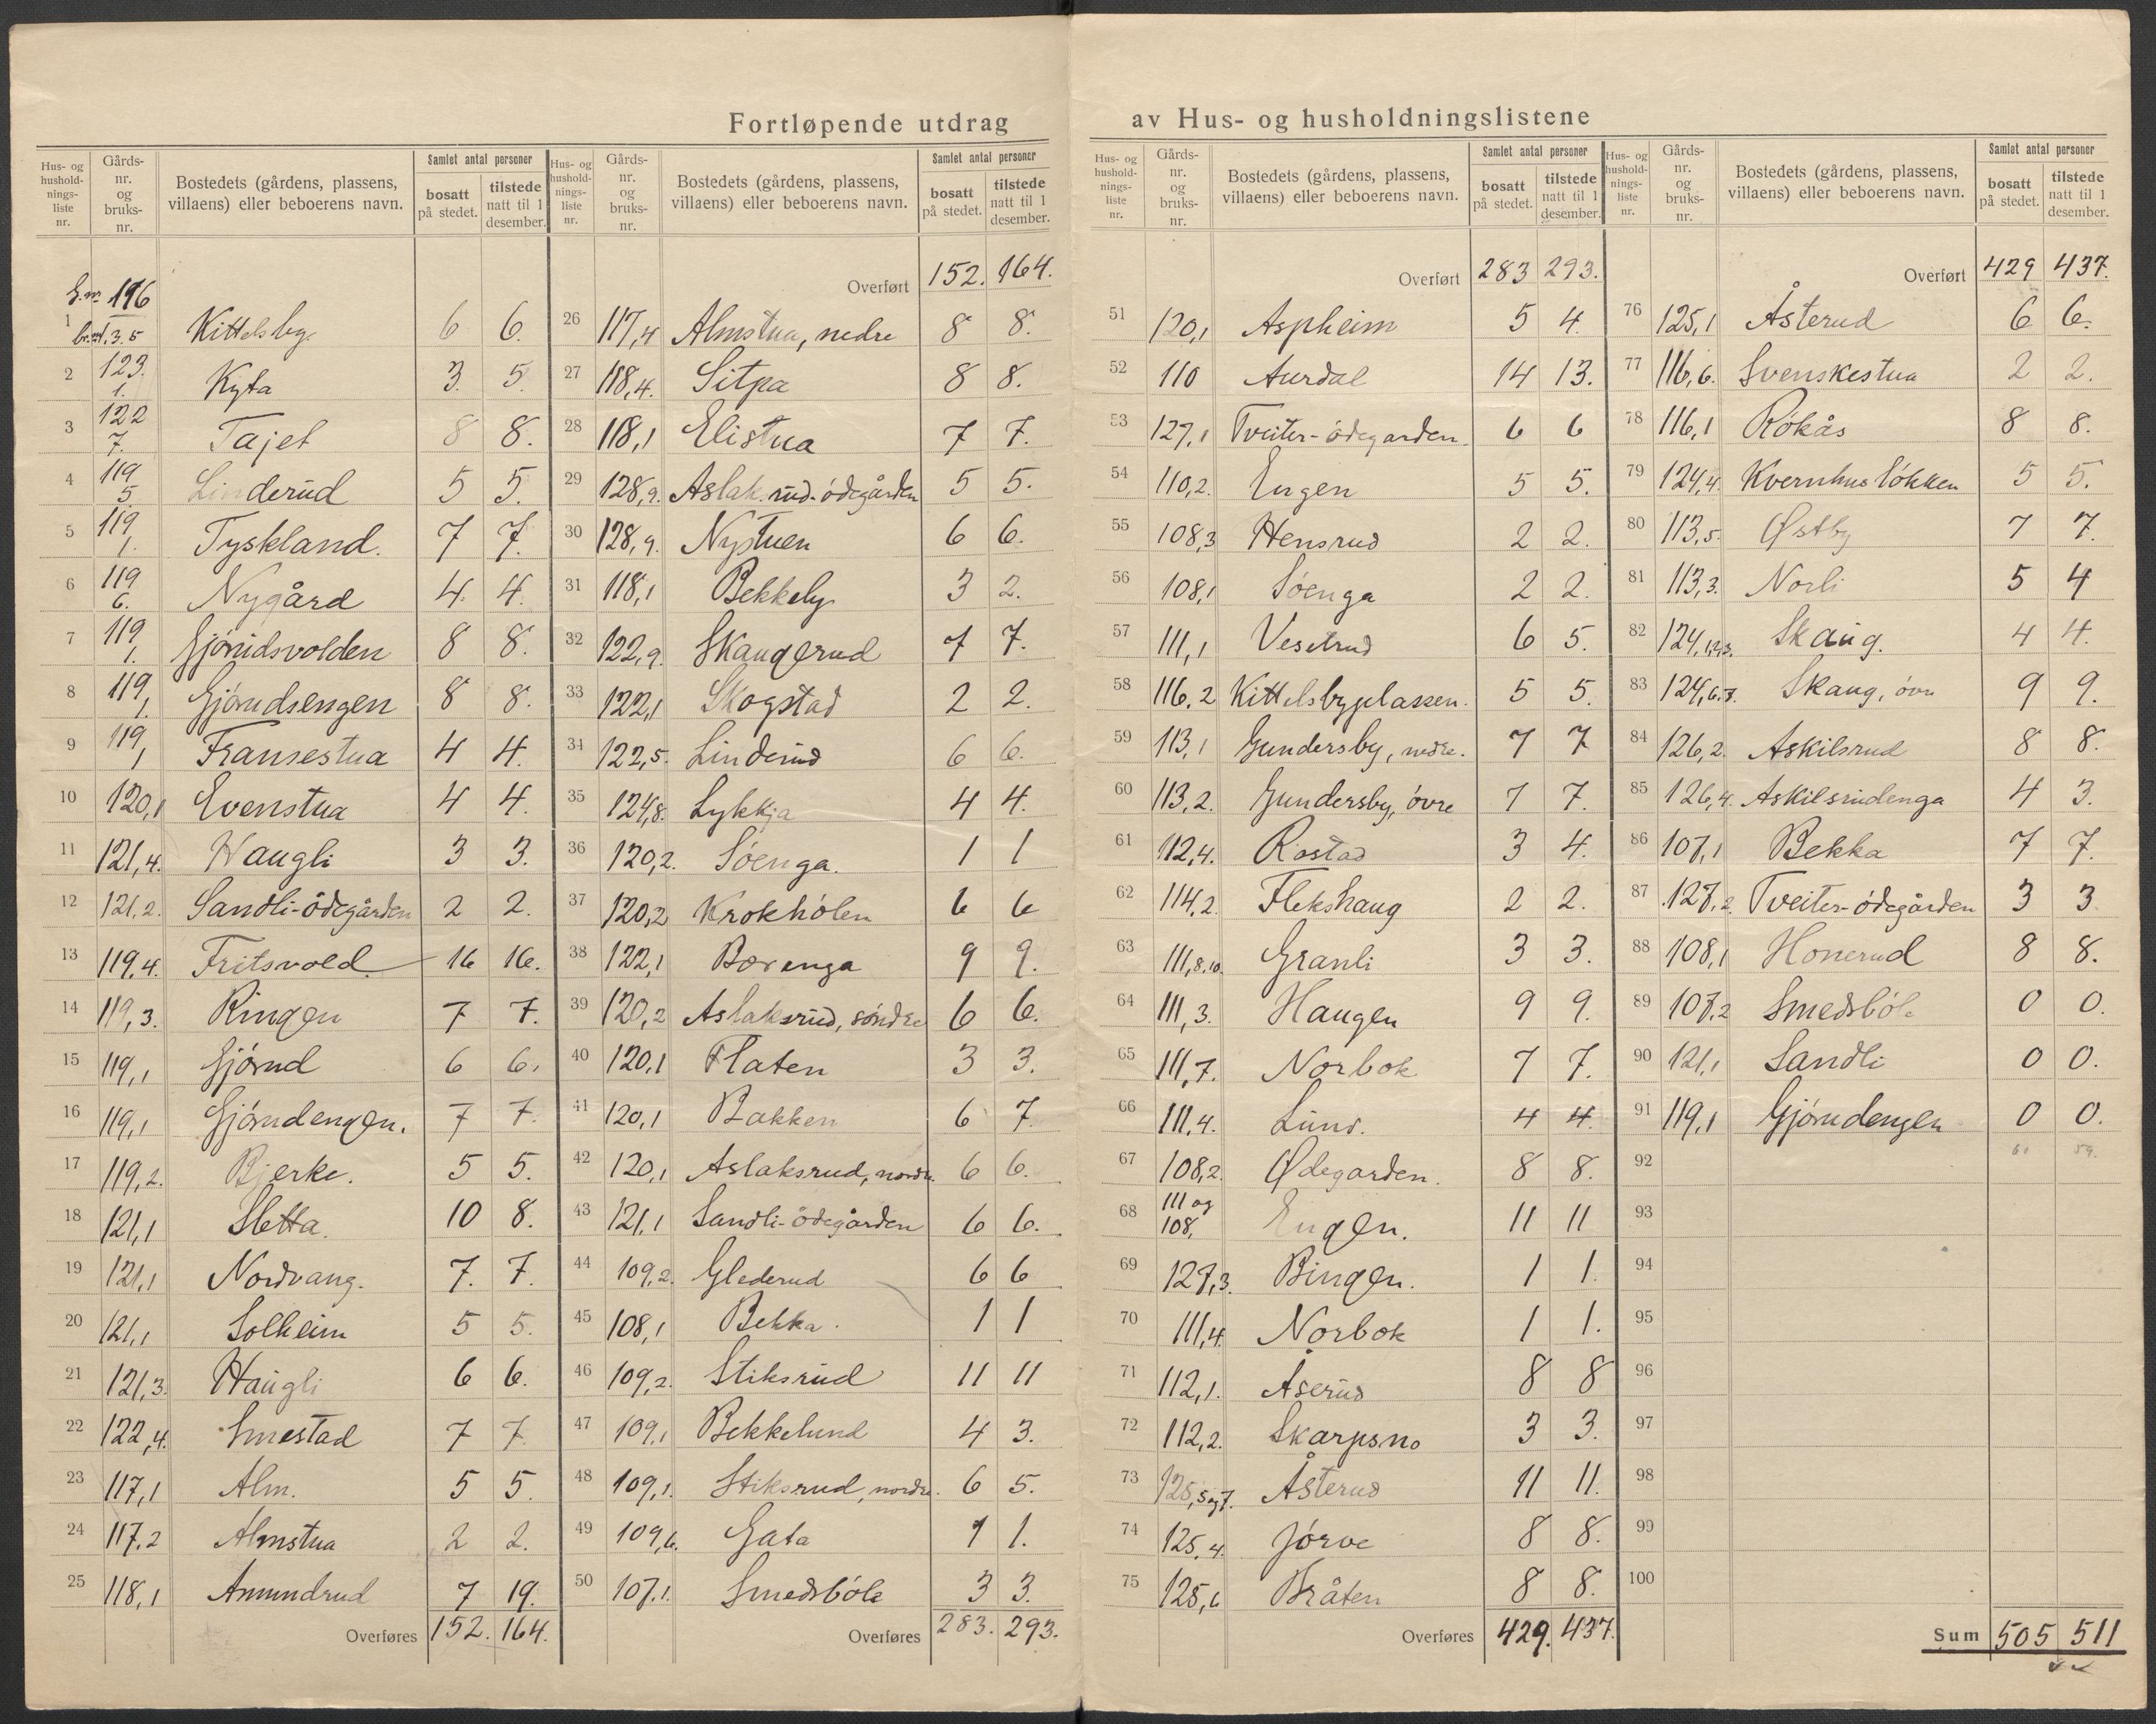 Fortløpende utdrag av Hus- og husholdningslistene
Hus- og husholdnings- liste nr. | Gårds- nr. og bruks- nr. | Bostedets (gårdens, plassens, villaens) eller beboerens navn. | Samlet antal personer bosatt på stedet. | tilstede natt til 1 desember.
G.nr. 116
1 br.nr. 1.3.5 Kittelsby. 6 6.
2 123 1. Kyta 3. 5.
3 122 7. Tajet 8 8.
4 119 5 Linderud 5 5.
5 119 1. Tyskland. 7 7.
6 119 6. Nygård 4. 4.
7 119 1. Gjørudsvolden 8 8.
8 119, 1. Gjørudsengen 8 8.
9 119, 1 Fransestua 4 4.
10 120,1 Evenstua 4 4.
11 121,4. Haugli 3 3.
12 121,2. Sandli-ödegården 2 2.
13 119,4. Fritsvold 16 16.
14 119,3. Ringen 7 7.
15 119,1 Gjørud 6 6.
16 119,1 Gjørudengen. 7 7.
17 119,2. Bjerke. 5 5.
18 121,1 Sletta. 10 8.
19 121,1 Nordvang. 7. 7.
20 121,1 Solheim 5 5.
21 121,3. Haugli 6 6.
22 122,4. Smestad 7 7.
23 117,1 Alm. 5 5.
24 117,2 Almstua 2 2.
25 118,1 Amundrud 7 19.
Overføres 152. 164.
Hus- og husholdnings- liste nr. | Gårds- nr. og bruks- nr. | Bostedets (gårdens, plassens, villaens) eller beboerens navn. | Samlet antal personer bosatt på stedet. | tilstede natt til 1 desember.
Overført 152. 164.
26 117,4 Almstua, nedre 8 8.
27 118,4. Sitpa 8 8.
28 118,1 Elistua 7 7.
29 128,9. Aslaksrud-ödegården 5 5.
30 128,9. Nystuen 6 6.
31 118,1 Bekkely 3 2.
32 122,9. Skaugerud 7 7.
33 122,1 Skogstad 2 2.
34 122,5. Linderud 6 6.
35 124,8. Lykkja 4 4.
36 120,2. Sóenga. 1 1
37 120,2 Krokhólen 6 6
38 122,1 Borenga 9 9.
39 120,2 Aslaksrud, söndre 6 6.
40 120,1 Flaten 3 3.
41 120,1 Bakken 6 7.
42 120,1 Aslaksrud, nordre. 6 6.
43 121,1 Sandli-ödegården 6 6.
44 109,2. Glederud 6 6
45 108,1 Bekka. 1 1
46 109,2. Stiksrud 11 11
47 109,1 Bekkelund 4 3.
48 109,1. Stiksrud, nordre. 6 5.
49 109,6. Gata 1 1.
50 107,1. Smedsbóle 3 3.
Overføres 283. 293.
Hus- og husholdnings- liste nr. | Gårds- nr. og bruks- nr. | Bostedets (gårdens, plassens, villaens) eller beboerens navn. | Samlet antal personer bosatt på stedet. | tilstede natt til 1 desember.
Overført 283 293.
51 120,1 Aspheim 5 4.
52 110 Aurdal 14 13.
53 127,1 Tveiter-ödegarden. 6 6
54 110,2. Engen 5 5.
55 108,3 Hensrud 2 2.
56 108,1 Sóenga 2 2.
57 111,1 Vesetrud 6 5.
58 116,2 Kittelsbyplassen. 5 5.
59 113,1 Gundersby, nedre. 7 7
60 113,2. Gundersby, óvre 7 7.
61 112,4. Rostad 3 4.
62 114,2. Flekshaug 2 2.
63 111,8,10. Granli 3 3.
64 111,3. Haugen 9 9.
65 111,7. Norbok 7 7.
66 111,4. Lund. 4 4.
67 108,2. Ødegarden. 8 8.
68 111 og 108, Engen. 11 11
69 127,3. Bingen. 1 1.
70 111,4. Norbok 1 1.
71 112,1. Åserud 8 8
72 112,2. Skarpsno 3 3.
73 125,5 og 7. Åsterud 11 11.
74 125,4. Jørve 8 8.
75 125,6 Bråten 8 8.
Overføres 429. 437.
Hus- og husholdnings- liste nr. | Gårds- nr. og bruks- nr. | Bostedets (gårdens, plassens, villaens) eller beboerens navn. | Samlet antal personer bosatt på stedet. | tilstede natt til 1 desember.
Overført 429 437.
76 125,1 Åsterud 6 6.
77 116,6. Svenskestua 2 2.
78 116,1 Rökås 8 8.
79 124,4. Kvernhuslökken 5 5.
80 113,5. Østby 7 7.
81 113,3. Norli 5 4
82 124,1,2,3. Skaug. 4 4.
83 124,6.7. Skaug, óvre 9 9.
84 126,2. Askilsrud 8 8.
85 126,4. Askilsrudenga 4 3.
86 107,1 Bekka 7 7.
87 127,2. Tveiter-ódegården 3 3
88 108,1 Honerud 8 8.
89 107,2 Smedsból 0 0.
90 121,1 Sandli 0 0.
91 119,1 Gjørudengen 0 0.
92
93
94
95
96
97
98
99
100
Sum 505 511